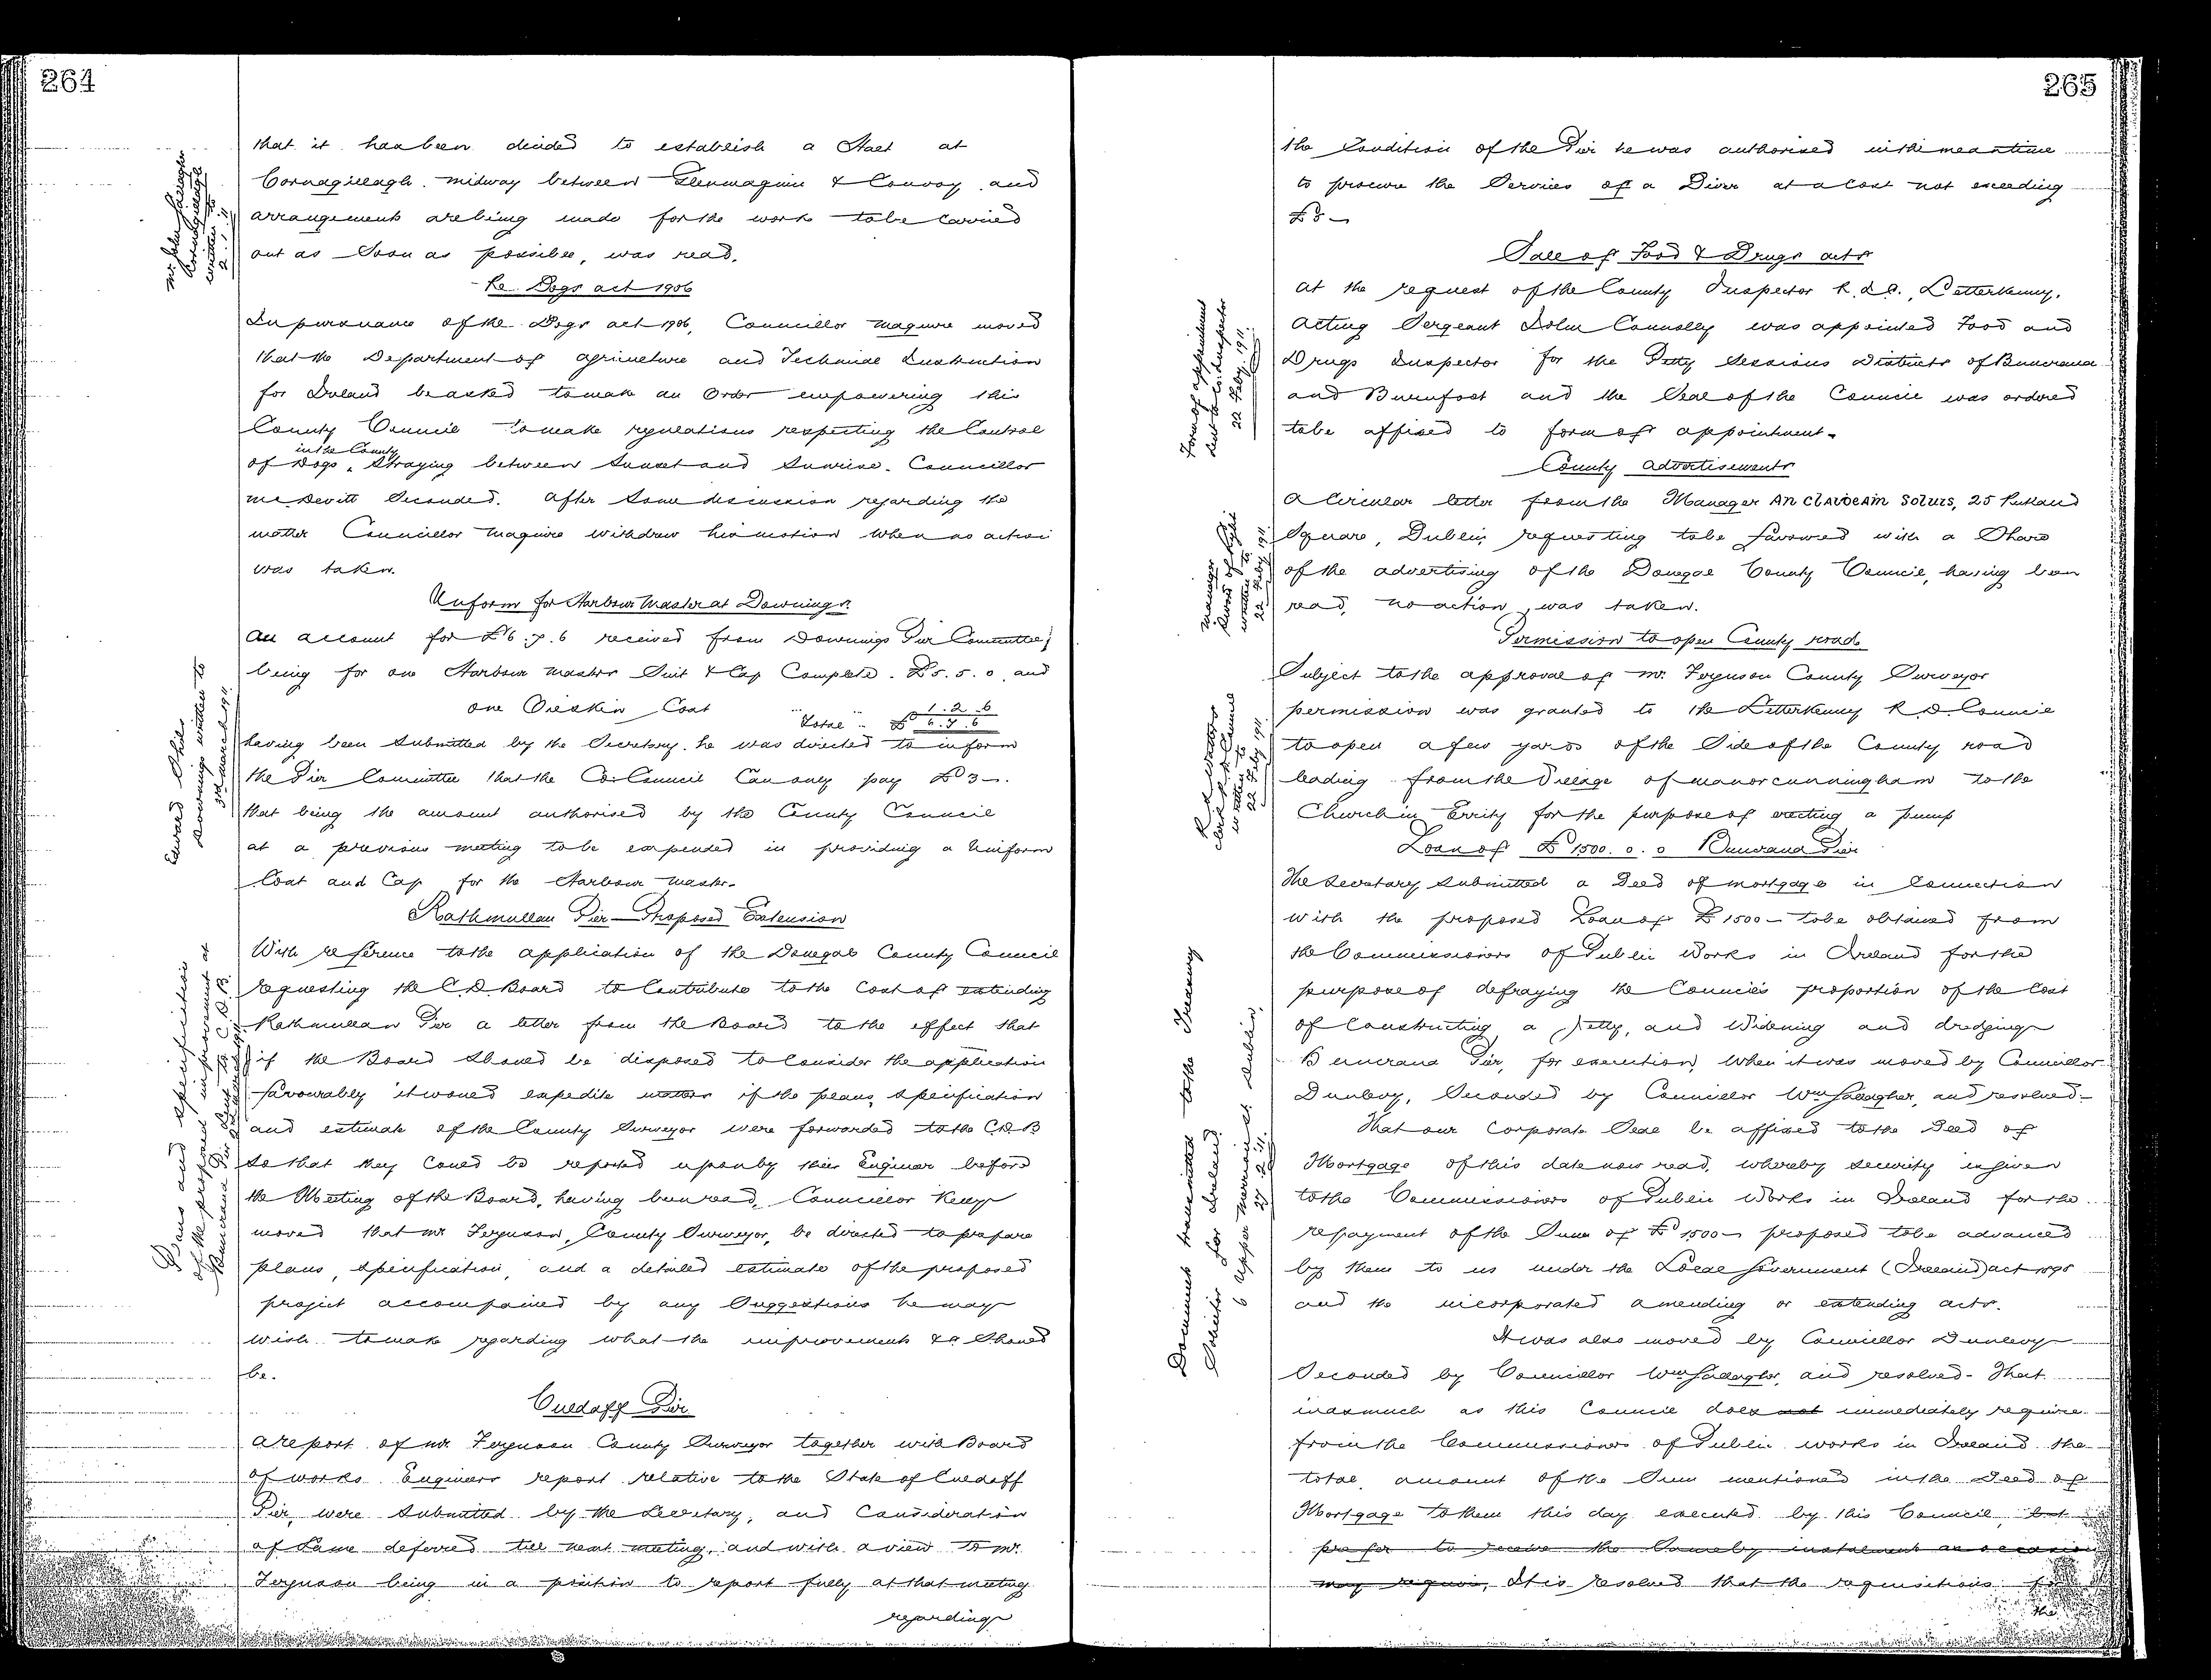 264
that it has been decided to establish a Halt at
Cornagillagh midway between Glenmaquin & Convoy and
arrangements are being made for the work to be carried
out as soon as possible, was read.
Re Dogs act 1906
In pursuance of the Dogs act 1906, Councillor Maguire moved
that the Department of Agriculture and Technical Instruction
for Ireland be asked to make an Order empowering this
County Council to make regulations respecting the Control
in the County
of Dogs, Straying between Sunset and Sunrise. Councillor
McDevitt Seconded. After Some discussion regarding the
matter Councillor Maguire withdrew his motion when no action
was taken.
Uniform for Harbour Master at Downings
An account for £6.7.6 received from Downings Pier Committee,
being for one Harbour Masters Suit & Cap Complete. £5.5.0, and
one Oilskin Coat 1.2.6
Total £6.7.6
having been Submitted by the Secretary. he was directed to inform
the Pier Committee that the Co. Council Can only pay £3-.
that being the amount authorised by the County Council
at a previous meeting to be expended in providing a Uniform
Coat and Cap for the Harbour Master.
Edward Shiels
Downings written to
3rd March 1911
Rathmullan Pier - Proposed Extension
With reference to the application of the Donegal County Council
requesting the C.D. Board to Contribute to the Cost of extending
Rathmullan Pier a letter from the Board to the effect that
if the Board should be disposed to Consider the application
favourably it would expedite matters if the plans, Specification
and estimate of the County Surveyor were forwarded to the C.D.B
so that they Could be reported upon by their Engineer before
the Meeting of the Board, having been read, Councillor Kelly
moved that Mr Ferguson, County Surveyor, be directed to prepare
plans, specification, and a detailed estimate of the proposed
project accompanied by any Suggestions he may
wish to make regarding what the improvements &c Should
be.
Plans and Specification
of the proposed improvement at
Culdaff Pier
A report of Mr Ferguson County Surveyor together with Board
of works Engineers report relative to the State of Culdaff
Pier, were Submitted by the Secretary, and Consideration
of Same deferred till next meeting, and with a view to Mr.
Ferguson being in a position to report fully at that meeting
regarding
265
the Condition of the Pier he was authorised in the meantime
to procure the Services of a Diver at a Cost not exceeding
£5-
Sale of Food & Drugs acts
At the request of the County Inspector R.I.C., Letterkenny,
Acting Sergeant John Connolly was appointed Food and
Drugs Inspector for the Petty Sessions Districts of Buncrana
and Burnfoot and the Seal of the Council was ordered
to be affixed to form of appointment.
Form of appointment
sent to Co. Inspector
22 Feby. 1911.
County Advertisements
A Circular letter from the Manager An Claideam Soluis, 25 Rutland
Square, Dublin, requesting to be favoured with a Share
of the advertising of the Donegal County Council, having been
read, no action was taken.
Permission to open County road
Subject to the approval of Mr. Ferguson County Surveyor
permission was granted to the Letterkenny R.D. Council
to open a few yards of the Side of the County road
leading from the Village of Manorcunningham to the
Church in Errity for the purpose of erecting a pump
Loan of £1500.0.0 Buncrana Pier
The Secretary Submitted a Deed of Mortgage in Connection
with the proposed Loan of £1500- to be obtained from
the Commissioners of Public Works in Ireland for the
purpose of defraying the Council's proportion of the Cost
of Constructing a Jetty, and Widening and dredging
Buncrana Pier, for execution, When it was moved by Councillor
Dunlevy, Seconded by Councillor Wm Gallagher, and resolved-
That our Corporate Seal be affixed to the Deed of
Mortgage of this date now read, whereby Security is given
to the Commissioners of Public Works in Ireland for the
repayment of the Sum of £1500- proposed to be advanced
by them to us under the Local Government (Ireland) act 1898
and the incorporated amending or extending acts.
Documents transmitted to the Treasury
Solicitor for Ireland
6 Upper Merrion St Dublin
27.2.11.
It was also moved by Councillor Dunlevy
Seconded by Councillor Wm Gallagher, and resolved- That
inasmuch as this Council does not immediately require
from the Commissioners of Public works in Ireland the
total amount of the Sum mentioned in the Deed of
Mortgage to them this day executed by this Council, but
prefer to receive the Same by instalments as occasion
may require, It is resolved that the requisitions for
the